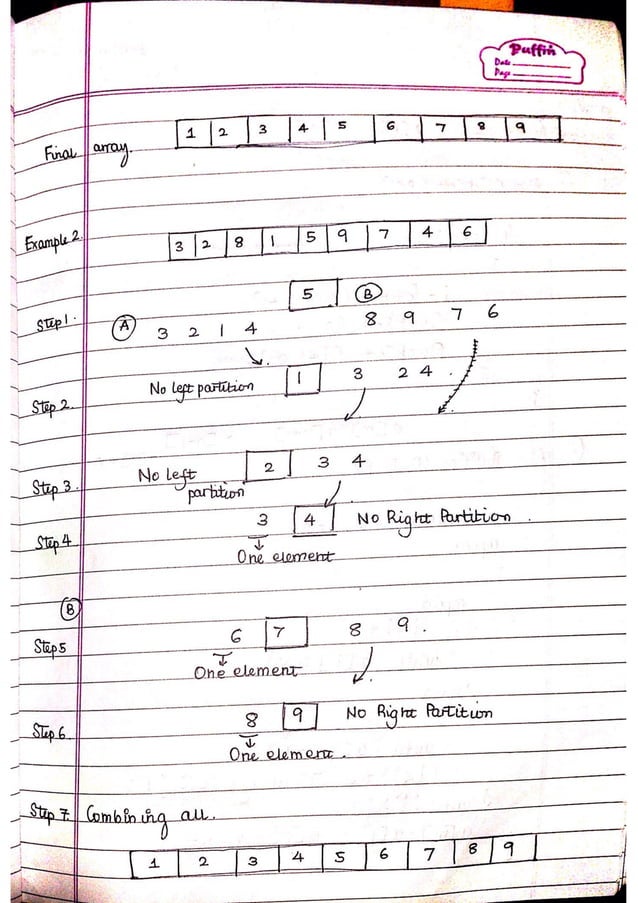 Puffin
Date
Page
Final array 1 2 3 4 5 6 7 8 9
Example 2. 3 2 8 1 5 9 7 4 6
5 B
Step 1. A 3 2 1 4 8 9 7 6
No left partition 1 3 2 4 .
Step 2.
No left 2 3 4
partition
Step 3.
3 4 No Right Partition .
Step 4
One element
B
6 7 8 9 .
Step 5
One element
8 9 No Right Partition
Step 6
One element .
Step 7. Combining all.
1 2 3 4 5 6 7 8 9